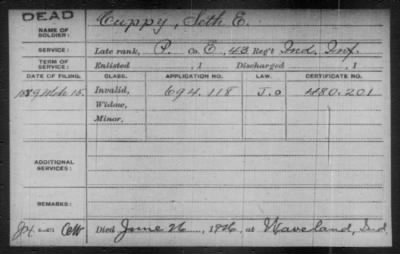 DEAD
NAME OF SOLDIER: Cuppy, Seth E.
SERVICE: Late rank, P. Co. E, 43 Reg't Ind. Inf.
TERM OF SERVICE: Enlisted , 1 Discharged , 1
DATE OF FILING. CLASS. APPLICATION NO. LAW. CERTIFICATE NO.
1889 Invalid, 694.118 J.O 480.201
Widow,
Minor,
ADDITIONAL SERVICES:
REMARKS:
Died June 26, 1926, at Waveland, Ind.